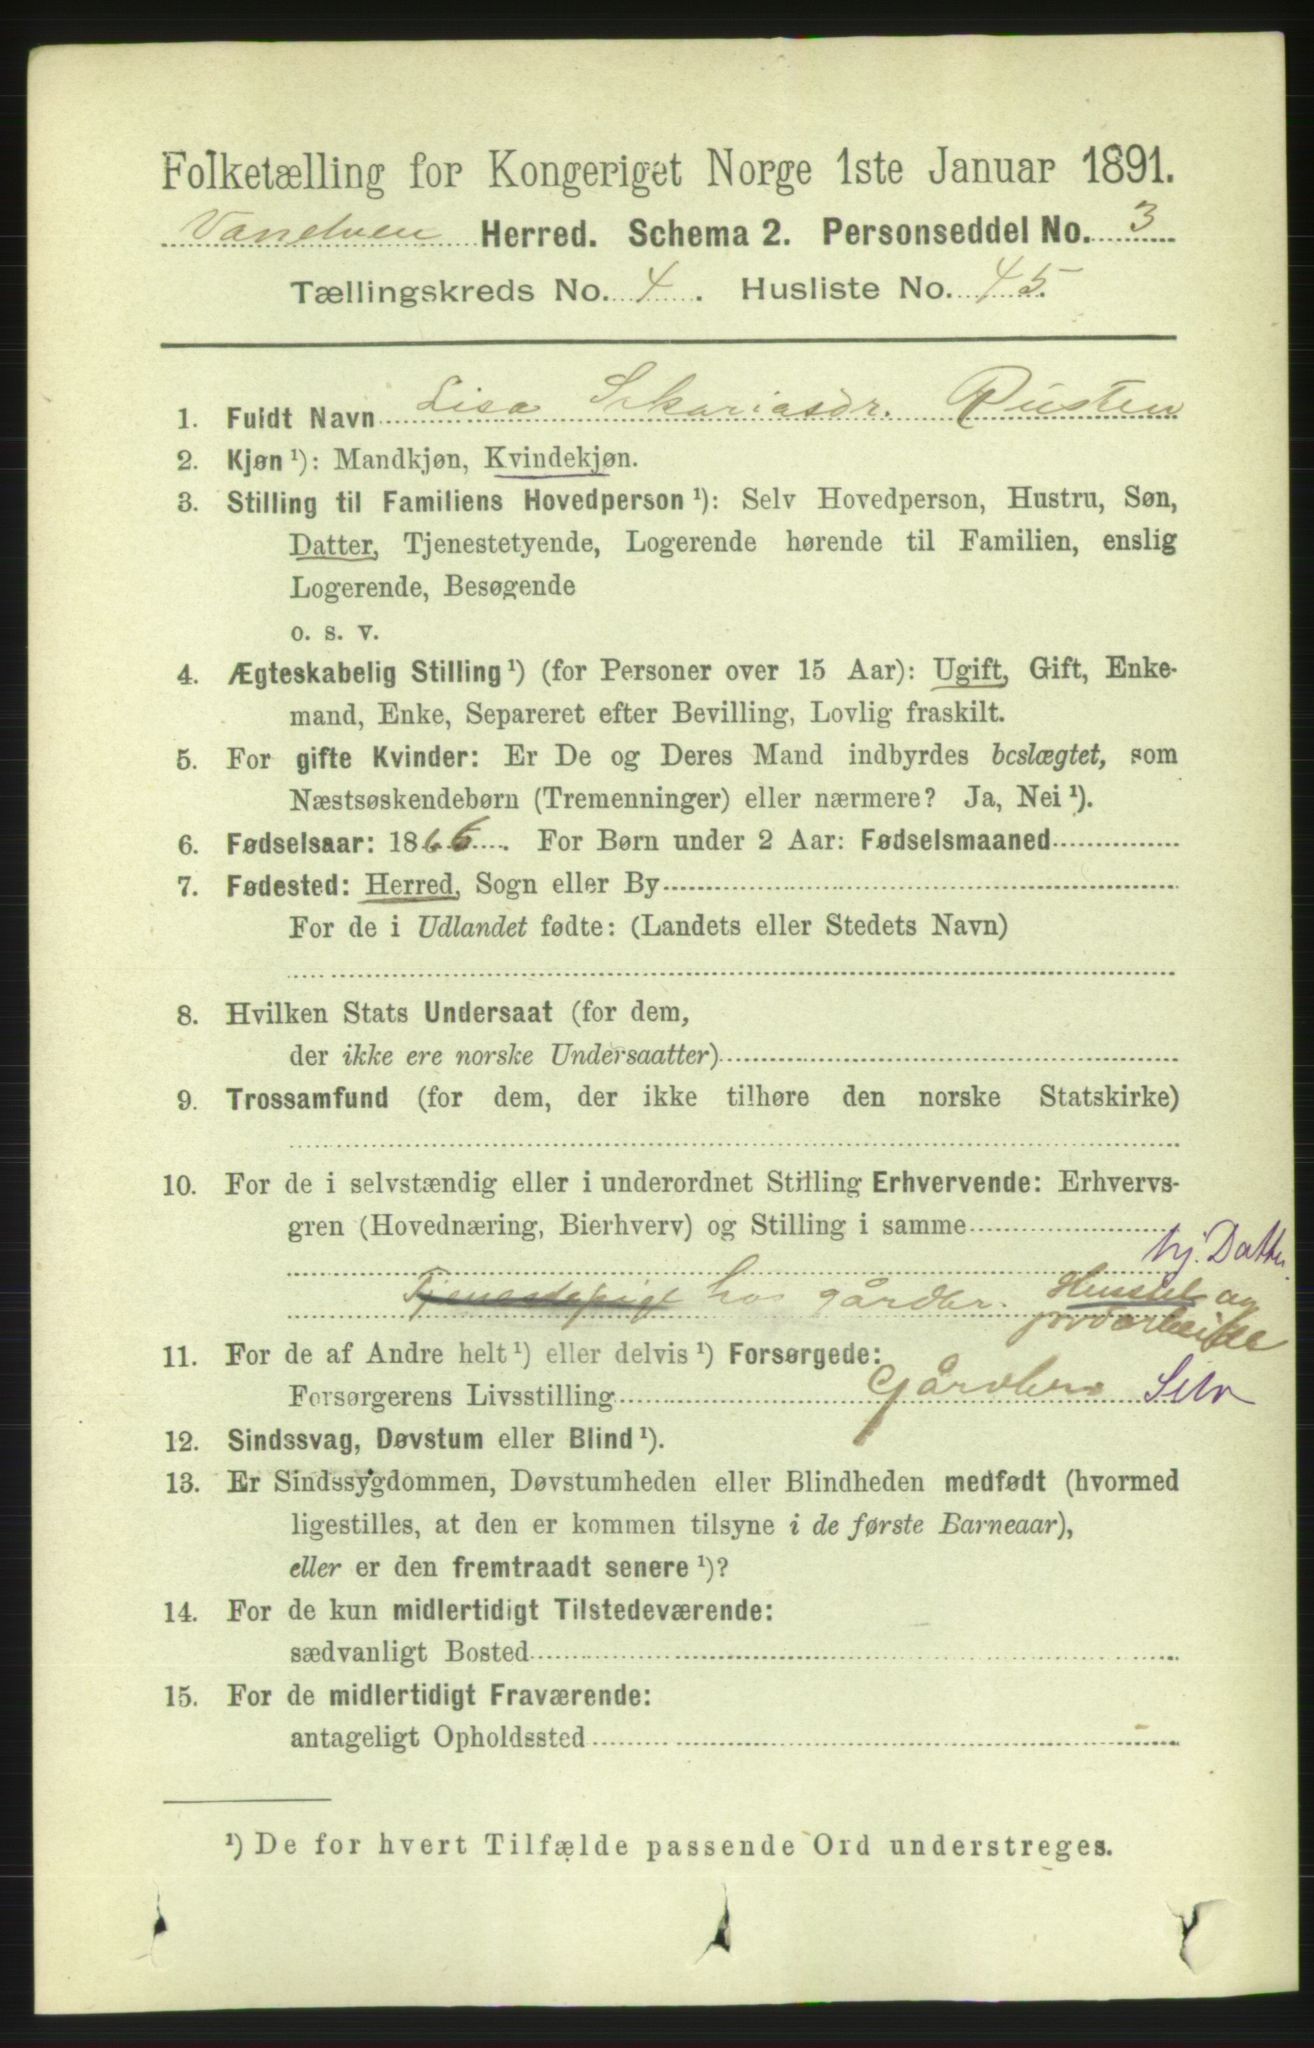 Folketælling for Kongeriget Norge 1ste Januar 1891.
Vanelven Herred. Schema 2. Personseddel No. 3
Tællingskreds No. 4. Husliste No. 45.
1. Fuldt Navn Lisa Sakariasdr. Rusten
2. Kjøn ¹): Mandkjøn, Kvindekjøn.
3. Stilling til Familiens Hovedperson ¹): Selv Hovedperson, Hustru, Søn,
Datter, Tjenestetyende, Logerende hørende til Familien, enslig
Logerende, Besøgende
o. s. v.
4. Ægteskabelig Stilling ¹) (for Personer over 15 Aar): Ugift, Gift, Enke-
mand, Enke, Separeret efter Bevilling, Lovlig fraskilt.
5. For gifte Kvinder: Er De og Deres Mand indbyrdes beslægtet, som
Næstsøskendebørn (Tremenninger) eller nærmere? Ja, Nei ¹).
6. Fødselsaar: 1866. For Børn under 2 Aar: Fødselsmaaned
7. Fødested: Herred, Sogn eller By
For de i Udlandet fødte: (Landets eller Stedets Navn)
8. Hvilken Stats Undersaat (for dem,
der ikke ere norske Undersaatter)
9. Trossamfund (for dem, der ikke tilhøre den norske Statskirke)
10. For de i selvstændig eller i underordnet Stilling Erhvervende: Erhvervs-
gren (Hovednæring, Bierhverv) og Stilling i samme
hj. Datter
Tjenestepige hos gårdbr. Husstel og
jordarbeide
11. For de af Andre helt ¹) eller delvis ¹) Forsørgede:
Forsørgerens Livsstilling Gårdbru Selv
12. Sindssvag, Døvstum eller Blind ¹).
13. Er Sindssygdommen, Døvstumheden eller Blindheden medfødt (hvormed
ligestilles, at den er kommen tilsyne i de første Barneaar),
eller er den fremtraadt senere ¹)?
14. For de kun midlertidigt Tilstedeværende:
sædvanligt Bosted
15. For de midlertidigt Fraværende:
antageligt Opholdssted
¹) De for hvert Tilfælde passende Ord understreges.